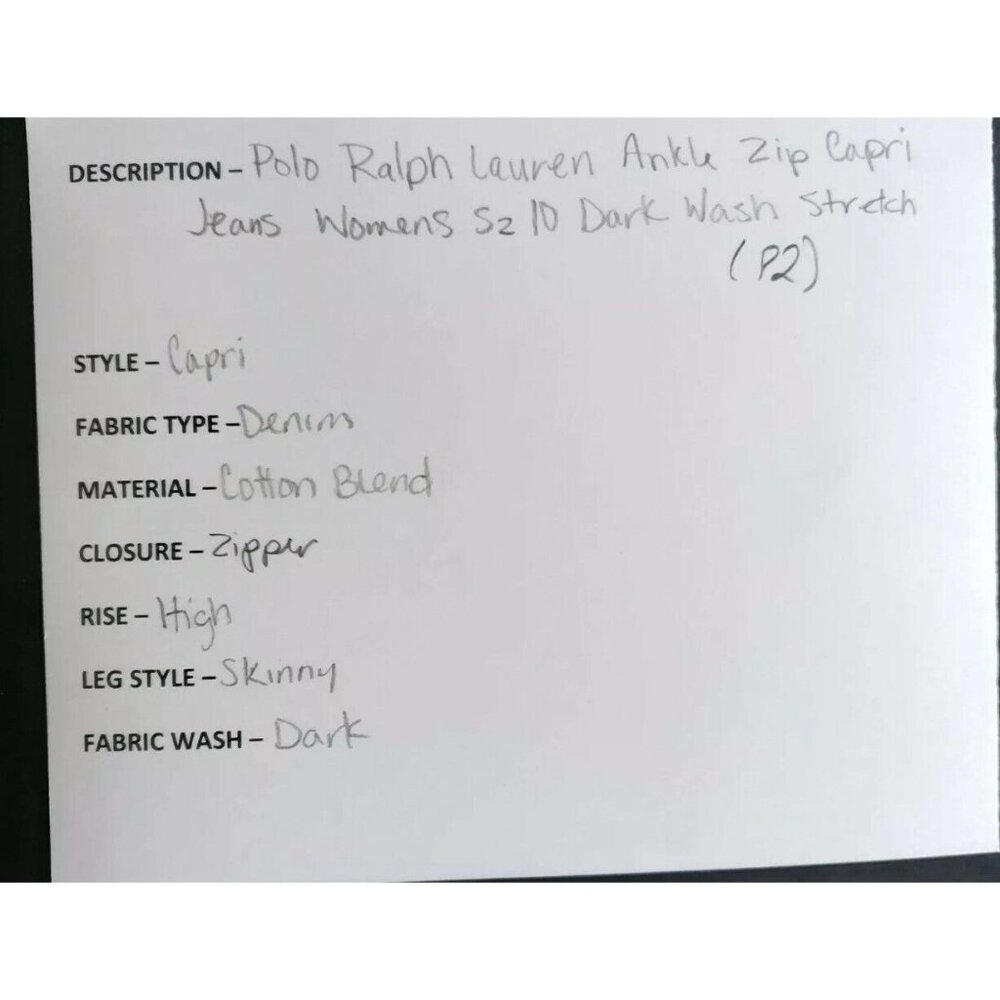 DESCRIPTION – Polo Ralph Lauren Ankle Zip Capri
Jeans Womens Sz 10 Dark Wash Stretch
(P2)
STYLE – Capri
FABRIC TYPE – Denim
MATERIAL – Cotton Blend
CLOSURE – Zipper
RISE – High
LEG STYLE – Skinny
FABRIC WASH – Dark